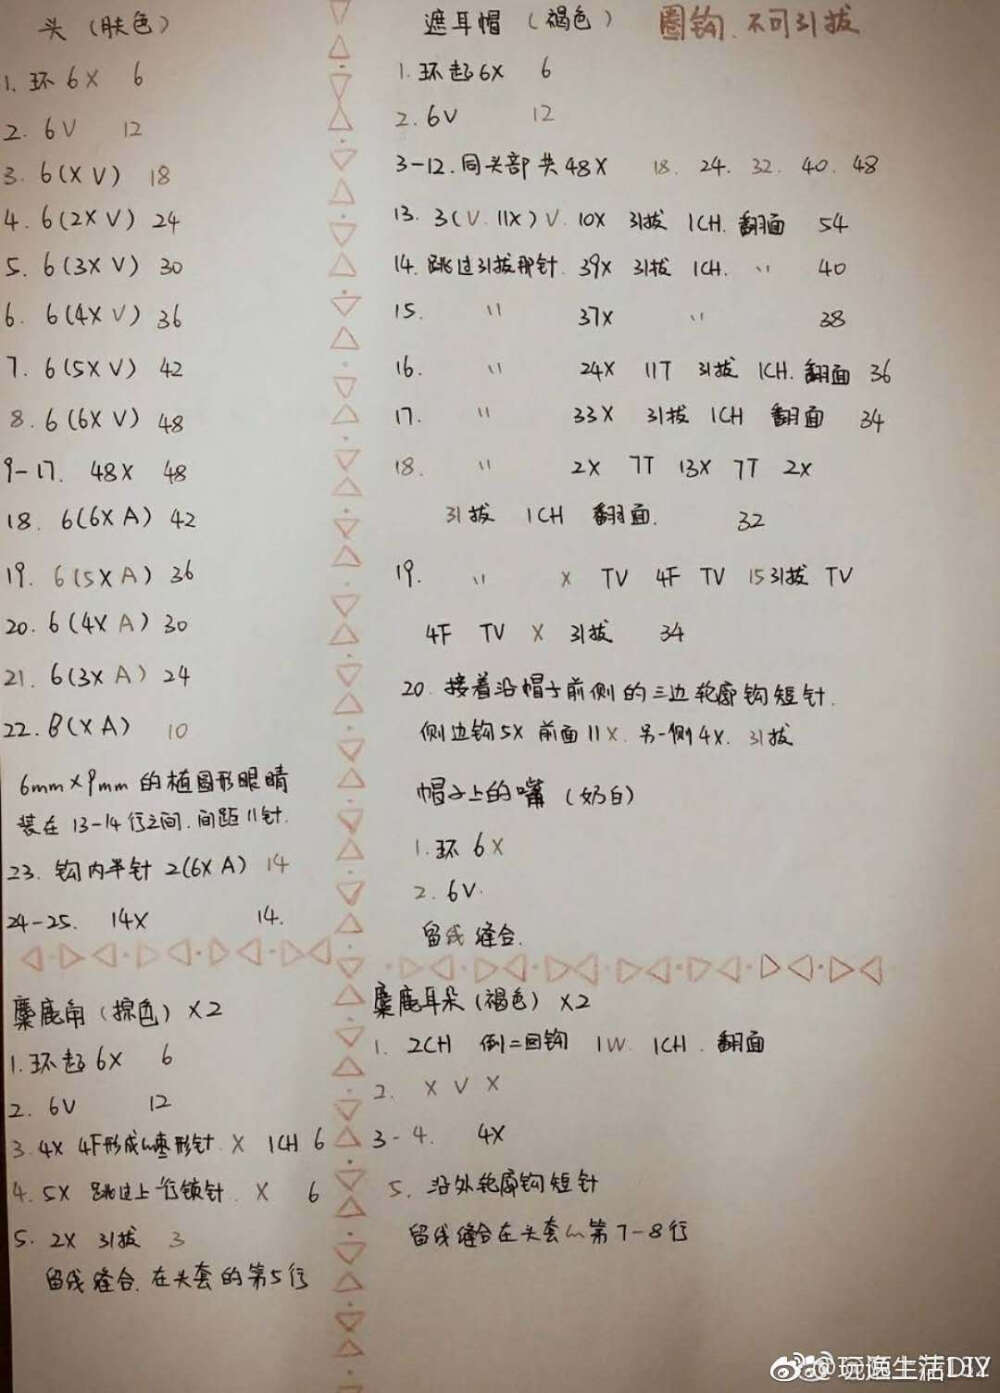 头（肤色）
1. 环 6X 6
2. 6V 12
3. 6(X V) 18
4. 6(2X V) 24
5. 6(3X V) 30
6. 6(4X V) 36
7. 6(5X V) 42
8. 6(6X V) 48
9-17. 48X 48
18. 6(6X A) 42
19. 6(5X A) 36
20. 6(4X A) 30
21. 6(3X A) 24
22. 8(X A) 10
6mm×9mm 的椭圆形眼睛
装在 13-14 行之间. 间距 11针.
23. 钩内半针 2(6X A) 14
24-25. 14X 14.
遮耳帽（褐色） 圈钩. 不可引拔
1. 环起 6X 6
2. 6V 12
3-12. 同头部 共 48X 18. 24. 32. 40. 48
13. 3(V. 11X) V. 10X 引拔 1CH. 翻面 54
14. 跳过引拔那针. 39X 引拔 1CH. 〃 40
15. 〃 37X 〃 38
16. 〃 24X 11T 引拔 1CH. 翻面 36
17. 〃 33X 引拔 1CH 翻面 34
18. 〃 2X 7T 13X 7T 2X
引拔 1CH 翻面. 32
19. 〃 X TV 4F TV 15引拔 TV
4F TV X 引拔 34
20. 接着沿帽子前侧的三边轮廓钩短针.
侧边钩5X 前面11X. 另一侧4X. 引拔
帽子上的嘴（奶白）
1. 环 6X
2. 6V.
留线缝合.
麋鹿角（棕色）X2
1. 环起 6X 6
2. 6V 12
3. 4X 4F形成的枣形针. X 1CH 6
4. 5X 跳过上一行锁针. X 6
5. 2X 引拔 3
留线缝合. 在头套的第5行
麋鹿耳朵（褐色）X2
1. 2CH 倒二回钩 1W. 1CH. 翻面
2. X V X
3-4. 4X
5. 沿外轮廓钩短针
留线缝合在头套的第7-8行